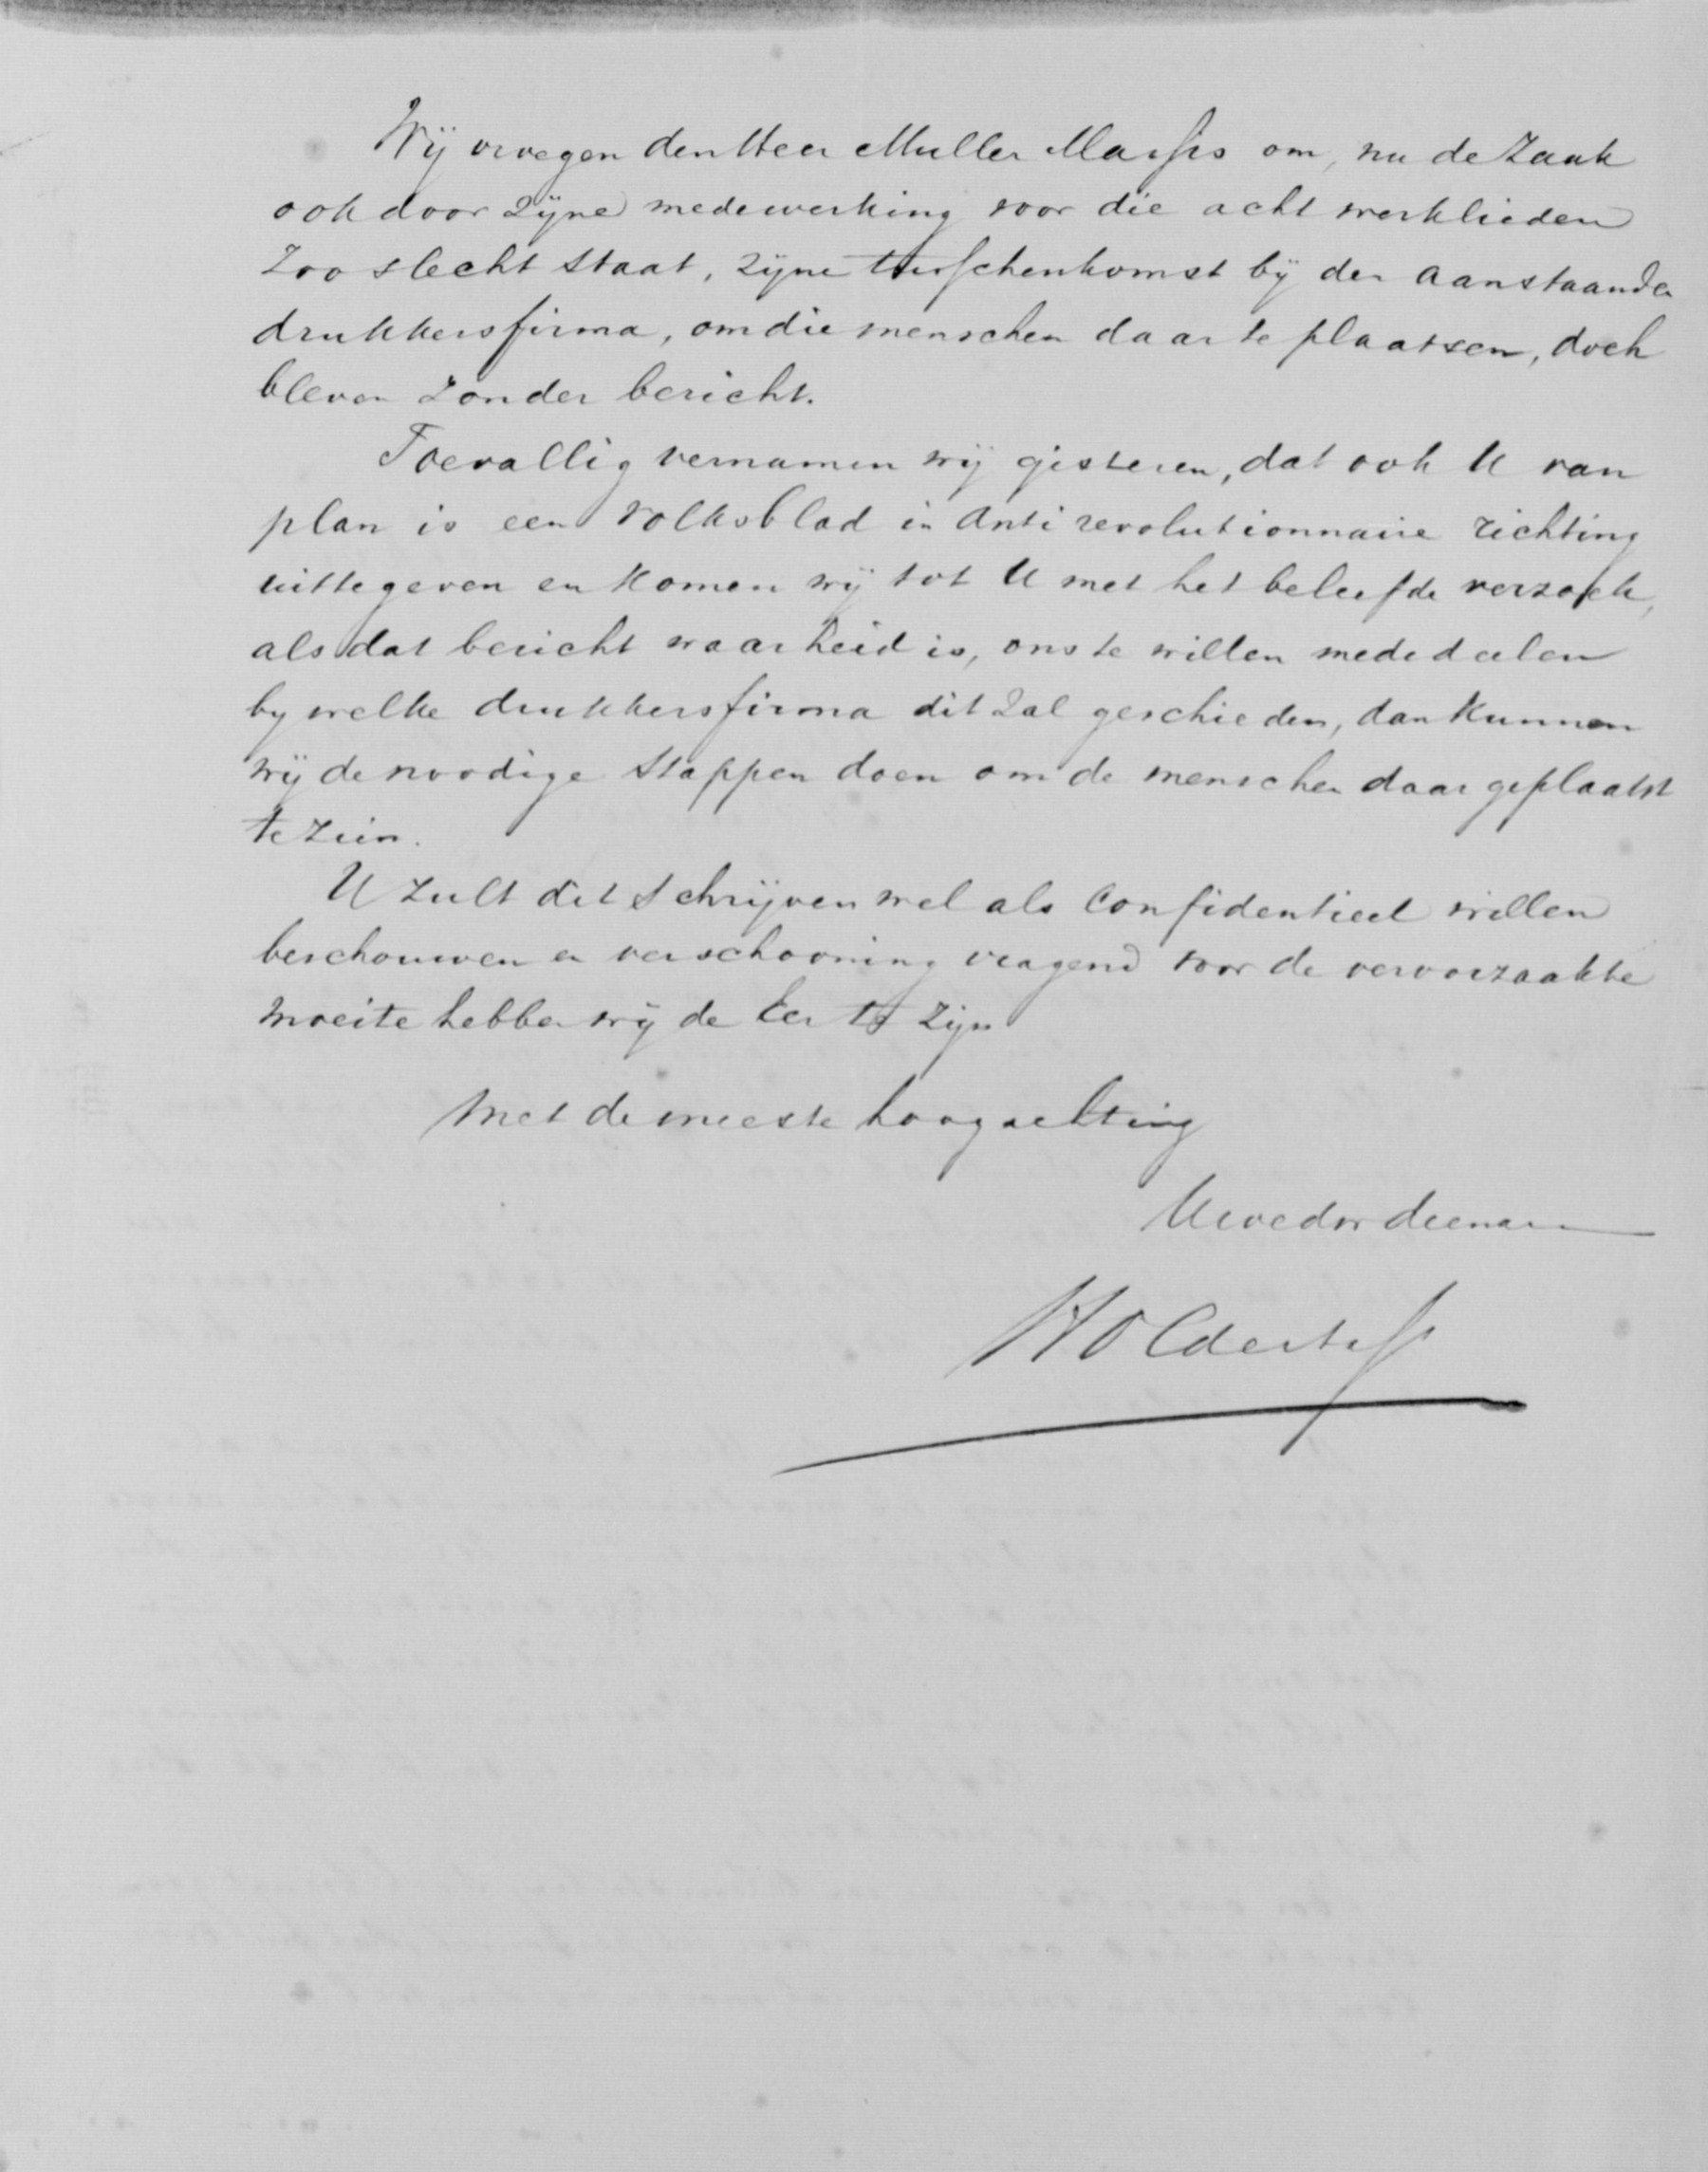 Wij vroegen den Heer Muller Massis om, nu de Zaak
ook door Zijne medewerking voor die acht werklieden
Zoo slecht staat, Zijne tusschenkomst bij den aanstaanden
drukkersfirma, om die menschen daar te plaatsen, doch
bleven Zonder bericht.
Toevallig vernamen wij gisteren, dat ook U van
plan is een Volksblad in Antirevolutionnaire richting
uittegeven en Komen wij tot U met het beleefde verzoek,
als dat bericht waarheid is, ons te willen mededeelen
by welke drukkersfirma dit Zal geschieden, dan Kunnen
wij de noodige Stappen doen om de menschen daar geplaatst
te Zien.
U Zult dit Schrijven wel als Confidentieel willen
beschouwen en verschooning vragend voor de veroorzaakte
moeite hebben wij de Eer te Zijn
Met de meeste hoogachting
Uwedw dienaar